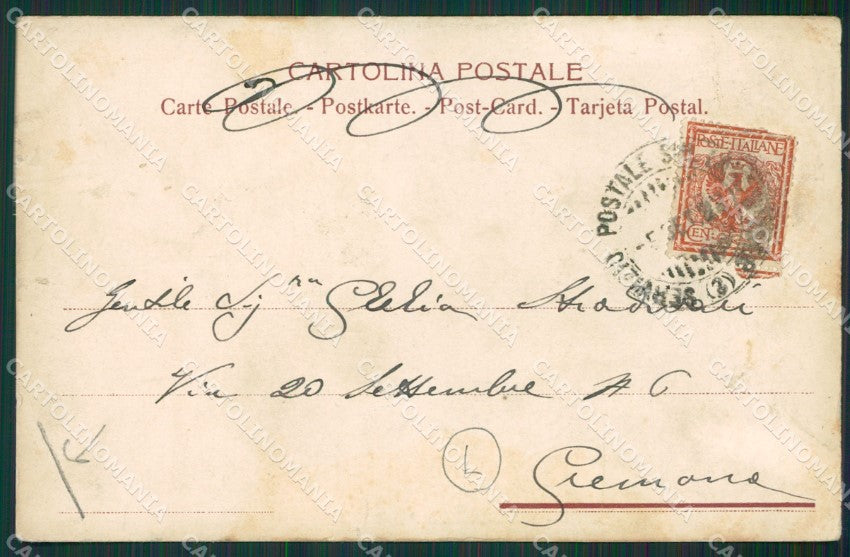 CARTOLINA POSTALE
Carte Postale. - Postkarte. - Post-Card. - Tarjeta Postal.
POSTE ITALIANE
POSTALE
SERVIZIO
(2)
Gentile Sig.ra
Via 20 Settembre № 6
Cremona
L
CARTOLINOMANIA